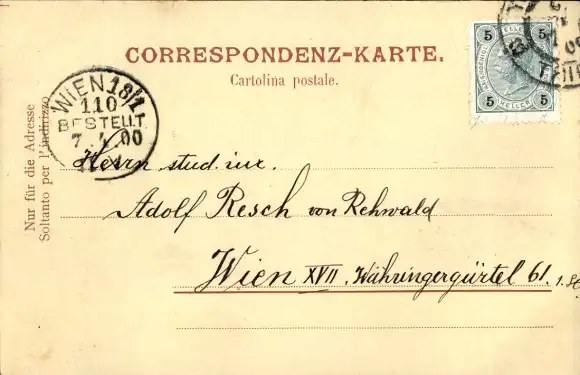 CORRESPONDENZ-KARTE.
Cartolina postale.
5 5
5 HELLER 5
WIEN 18/1
110
BESTELLT
7. 4. 00
Nur für die Adresse
Soltanto per l'indirizzo
Herrn stud. iur.
Adolf Resch von Rehwald
Wien XVII. Währingergürtel 61.